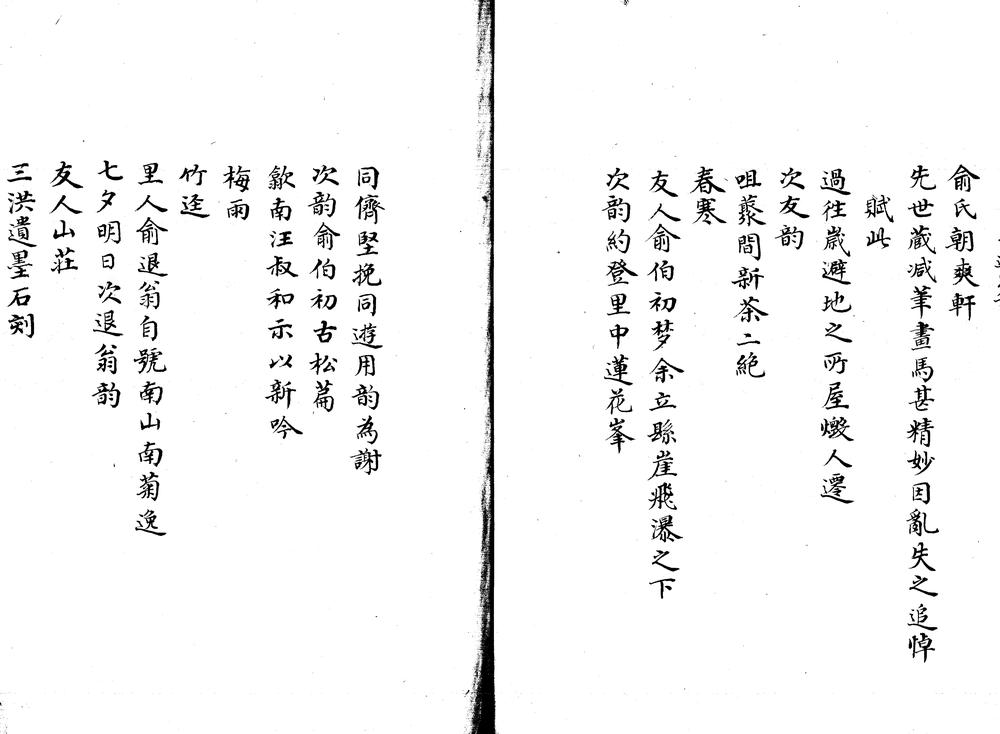 俞氏朝爽軒
先世蔵减筆畫馬甚精妙因亂失之追悼
賦此
過徃嵗避地之所屋燬人遷
次友韵
咀蕞間新茶二絶
春寒
友人俞伯初梦余立縣崖飛瀑之下
次韵約登里中蓮花峯
同儕堅挽同遊用韵為謝
次韵俞伯初古松篇
歙南汪叔和示以新吟
梅雨
竹迳
里人俞退翁自號南山南菊逸
七夕明日次退翁韵
友人山莊
三洪遺墨石刻